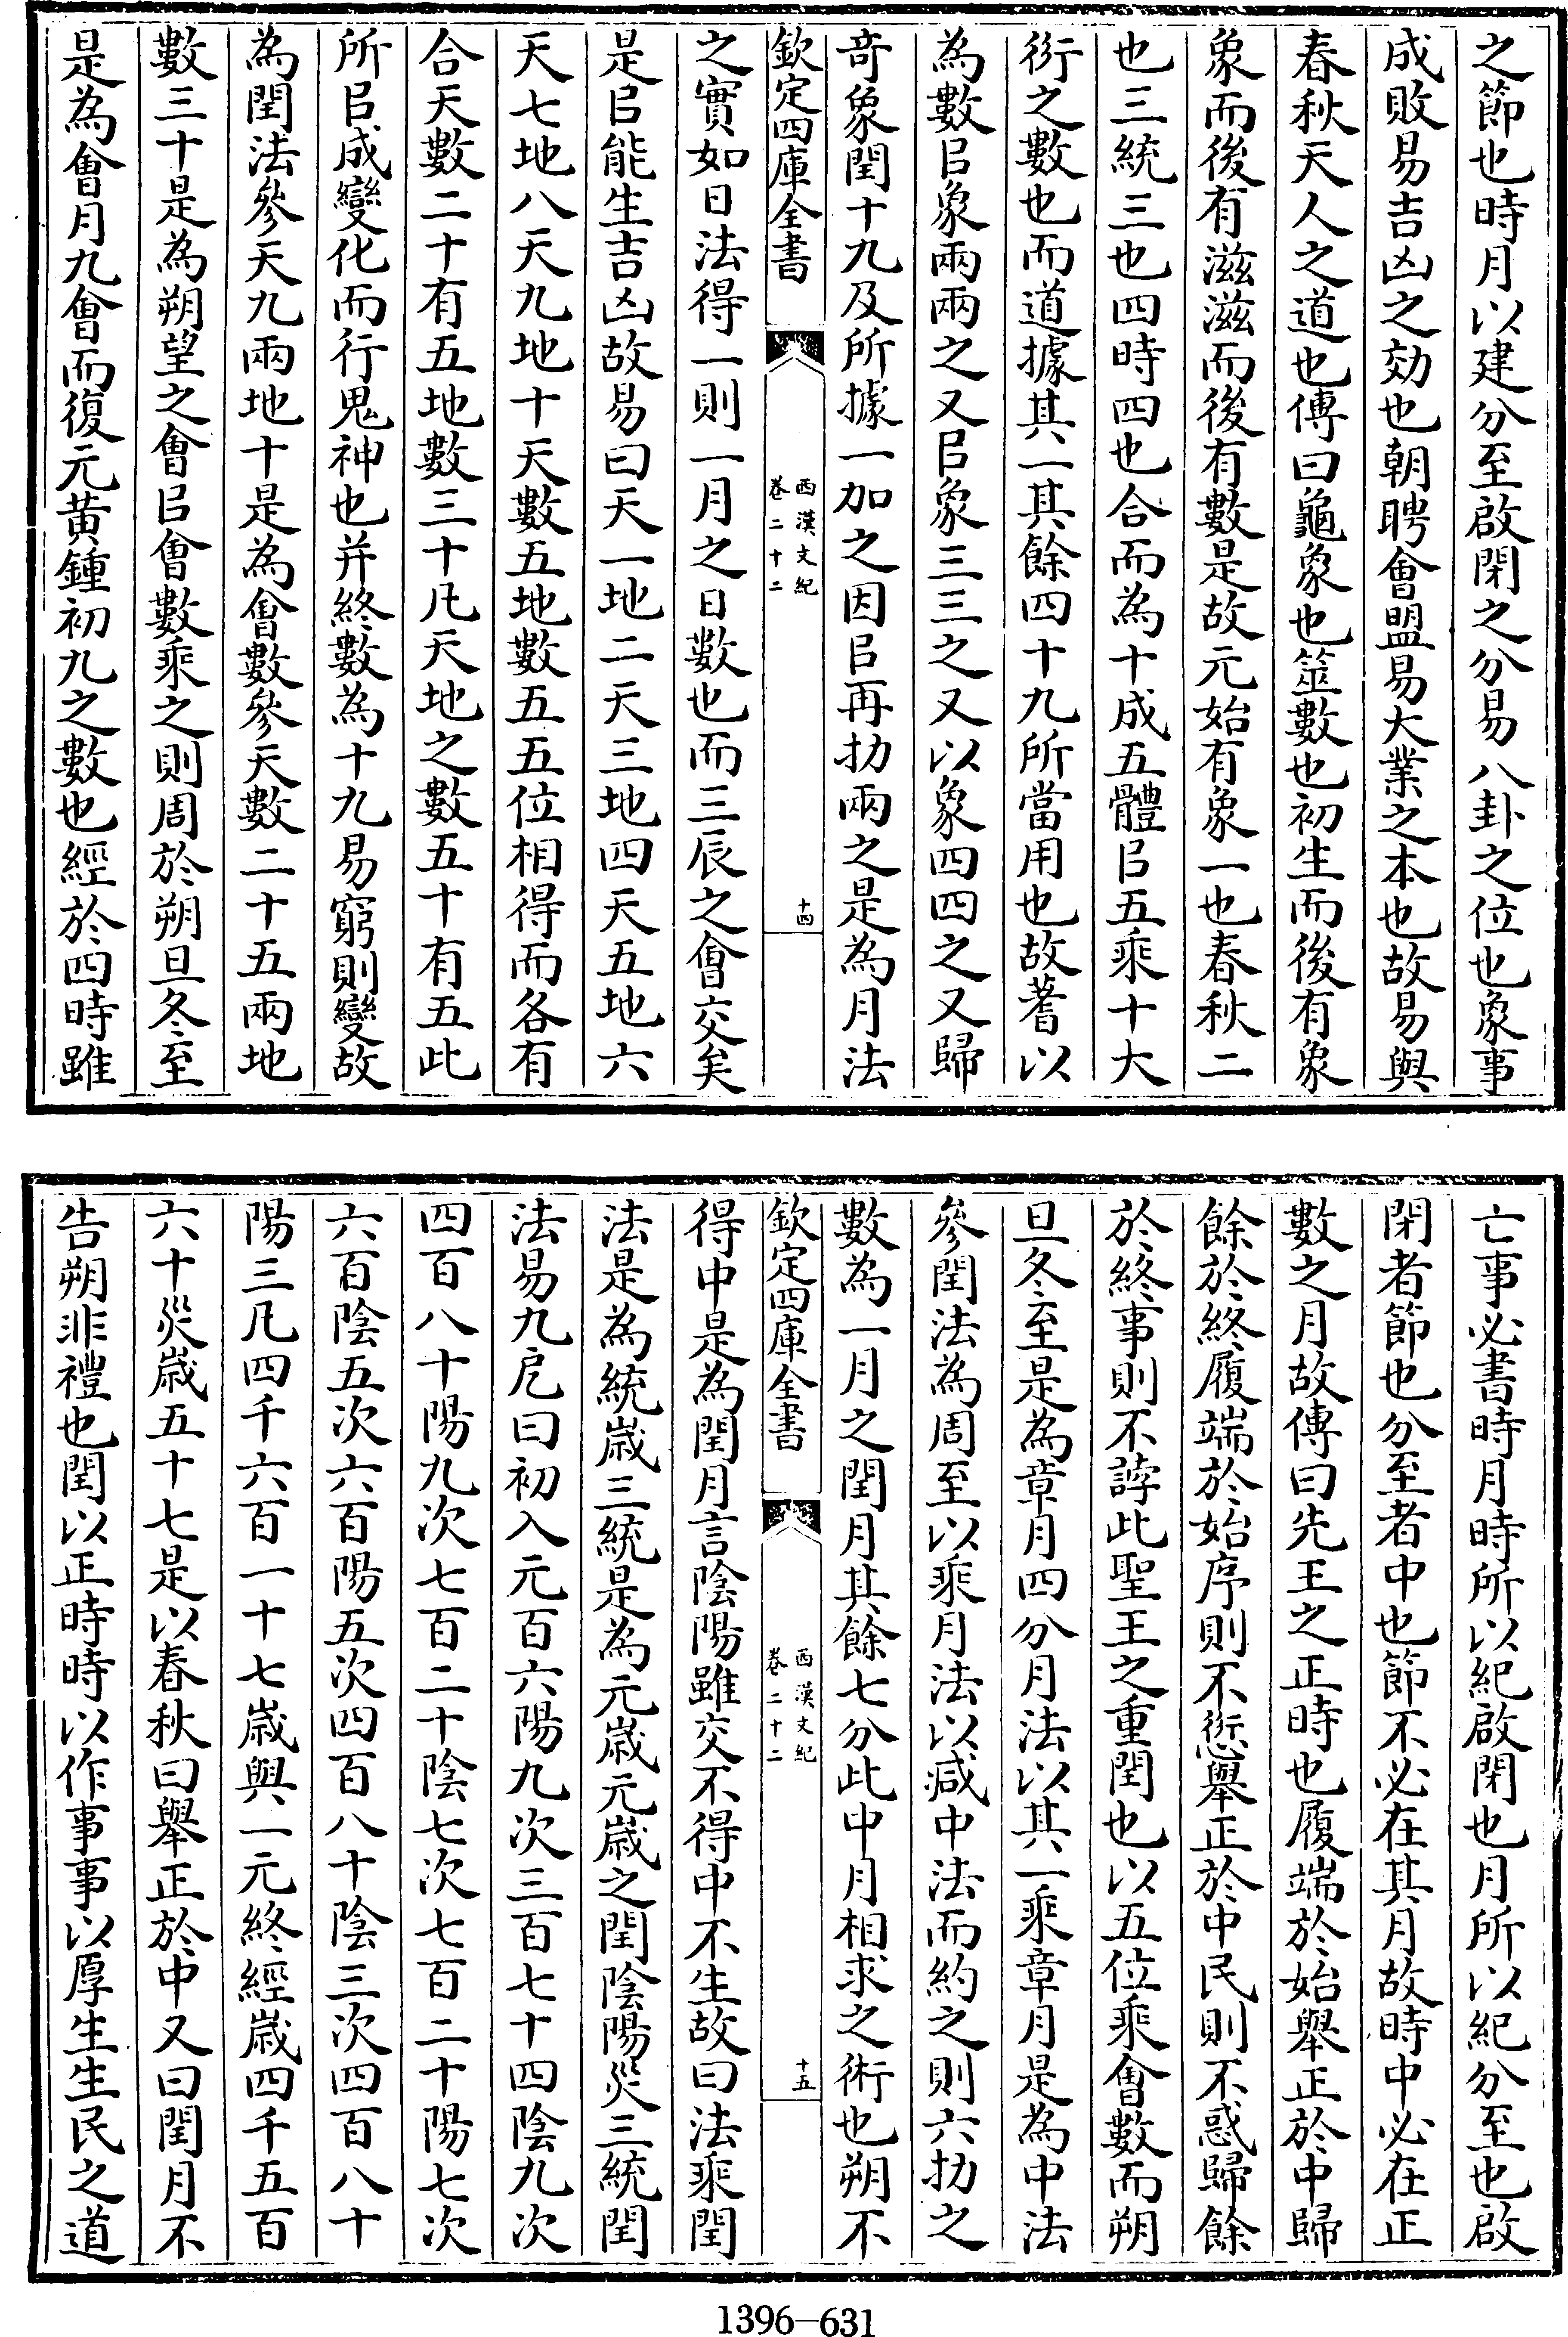 之節也時月以建分至啟閉之分易八卦之位也象事
成敗易吉凶之効也朝聘會盟易大業之本也故易與
春秋天人之道也傳曰龜象也筮數也初生而後有象
象而後有滋滋而後有數是故元始有象一也春秋二
也三統三也四時四也合而為十成五體㠯五乘十大
衍之數也而道據其一其餘四十九所當用也故蓍以
為數㠯象兩兩之又㠯象三三之又以象四四之又歸
奇象閏十九及所據一加之因㠯再扐兩之是為月法
欽定四庫全書
西漢文紀
卷二十二
十四
之實如日法得一則一月之日數也而三辰之會交矣
是㠯能生吉凶故易曰天一地二天三地四天五地六
天七地八天九地十天數五地數五五位相得而各有
合天數二十有五地數三十凡天地之數五十有五此
所㠯成變化而行鬼神也并終數為十九易窮則變故
為閏法參天九兩地十是為會數參天數二十五兩地
數三十是為朔望之會㠯會數乘之則周於朔旦冬至
是為會月九會而復元黃鍾初九之數也經於四時雖
亡事必書時月時所以紀啟閉也月所以紀分至也啟
閉者節也分至者中也節不必在其月故時中必在正
數之月故傳曰先王之正時也履端於始舉正於中歸
餘於終履端於始序則不愆舉正於中民則不惑歸餘
於終事則不誖此聖王之重閏也以五位乘會數而朔
旦冬至是為章月四分月法以其一乘章月是為中法
參閏法為周至以乘月法以減中法而約之則六扐之
數為一月之閏月其餘七分此中月相求之術也朔不
欽定四庫全書
西漢文紀
卷二十二
十五
得中是為閏月言陰陽雖交不得中不生故曰法乘閏
法是為統歲三統是為元歲元歲之閏陰陽災三統閏
法易九戹曰初入元百六陽九次三百七十四陰九次
四百八十陽九次七百二十陰七次七百二十陽七次
六百陰五次六百陽五次四百八十陰三次四百八十
陽三凡四千六百一十七歲與一元終經歲四千五百
六十災歲五十七是以春秋曰舉正於中又曰閏月不
告朔非禮也閏以正時時以作事事以厚生生民之道
1396-631